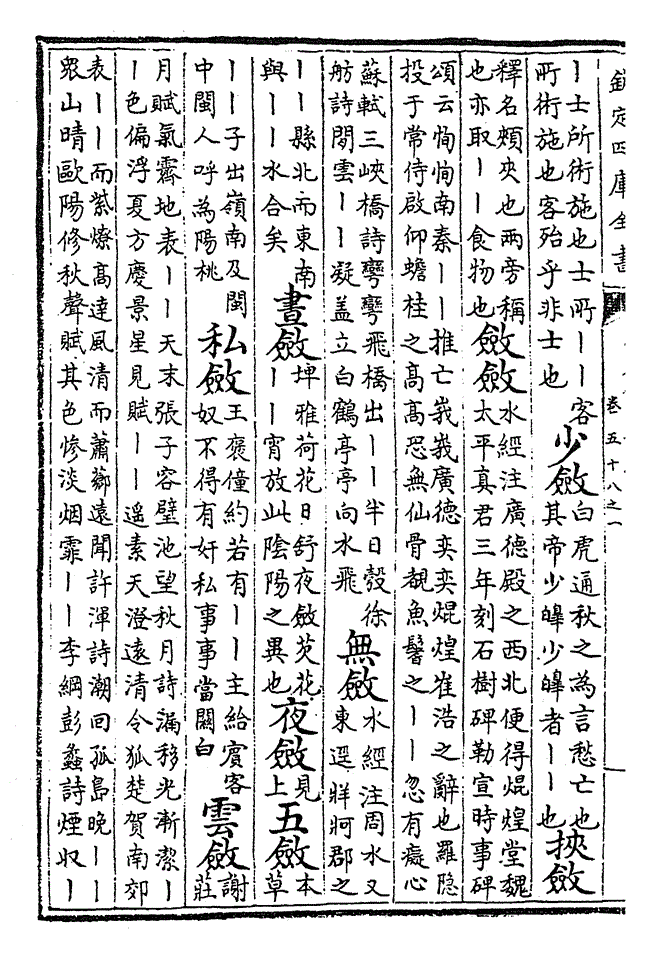 欽定四庫全書
卷五十八之一
丨士所術施也士所丨丨客
所術施也客殆乎非士也
少斂
白虎通秋之為言愁亡也
其帝少皞少皞者丨丨也
挾斂
釋名頰夾也兩旁稱
也亦取丨丨食物也
斂斂
水經注廣德殿之西北便得焜煌堂魏
太平真君三年刻石樹碑勒宣時事碑
頌云恂恂南秦丨丨推亡峩峩廣德奕奕焜煌崔浩之辭也羅隐
投于常侍啟仰蟾桂之高高恐無仙骨覩魚鬐之丨丨忽有癡心
蘇軾三峽橋詩彎彎飛橋出丨丨半日彀徐
舫詩閒雲丨丨凝盖立白鶴亭亭向水飛
無斂
水經注周水又
東逕牂牁郡之
丨丨縣北而東南
與丨丨水合矣
晝斂
埤雅荷花日舒夜斂芡花
丨丨宵放此陰陽之異也
夜斂
見
上
五斂
本
草
丨丨子出嶺南及閩
中閩人呼為陽桃
私斂
王褒僮約若有丨丨主給賓客
奴不得有奸私事事當關白
雲斂
謝
莊
月賦氣霽地表丨丨天末張子容璧池望秋月詩漏移光漸潔丨
丨色偏浮夏方慶景星見賦丨丨遥素天澄遠清令狐楚賀南郊
表丨丨而紫燎高達風清而蕭薌遠聞許渾詩潮回孤島晚丨丨
衆山晴歐陽修秋聲賦其色慘淡烟霏丨丨李綱彭蠡詩煙収丨